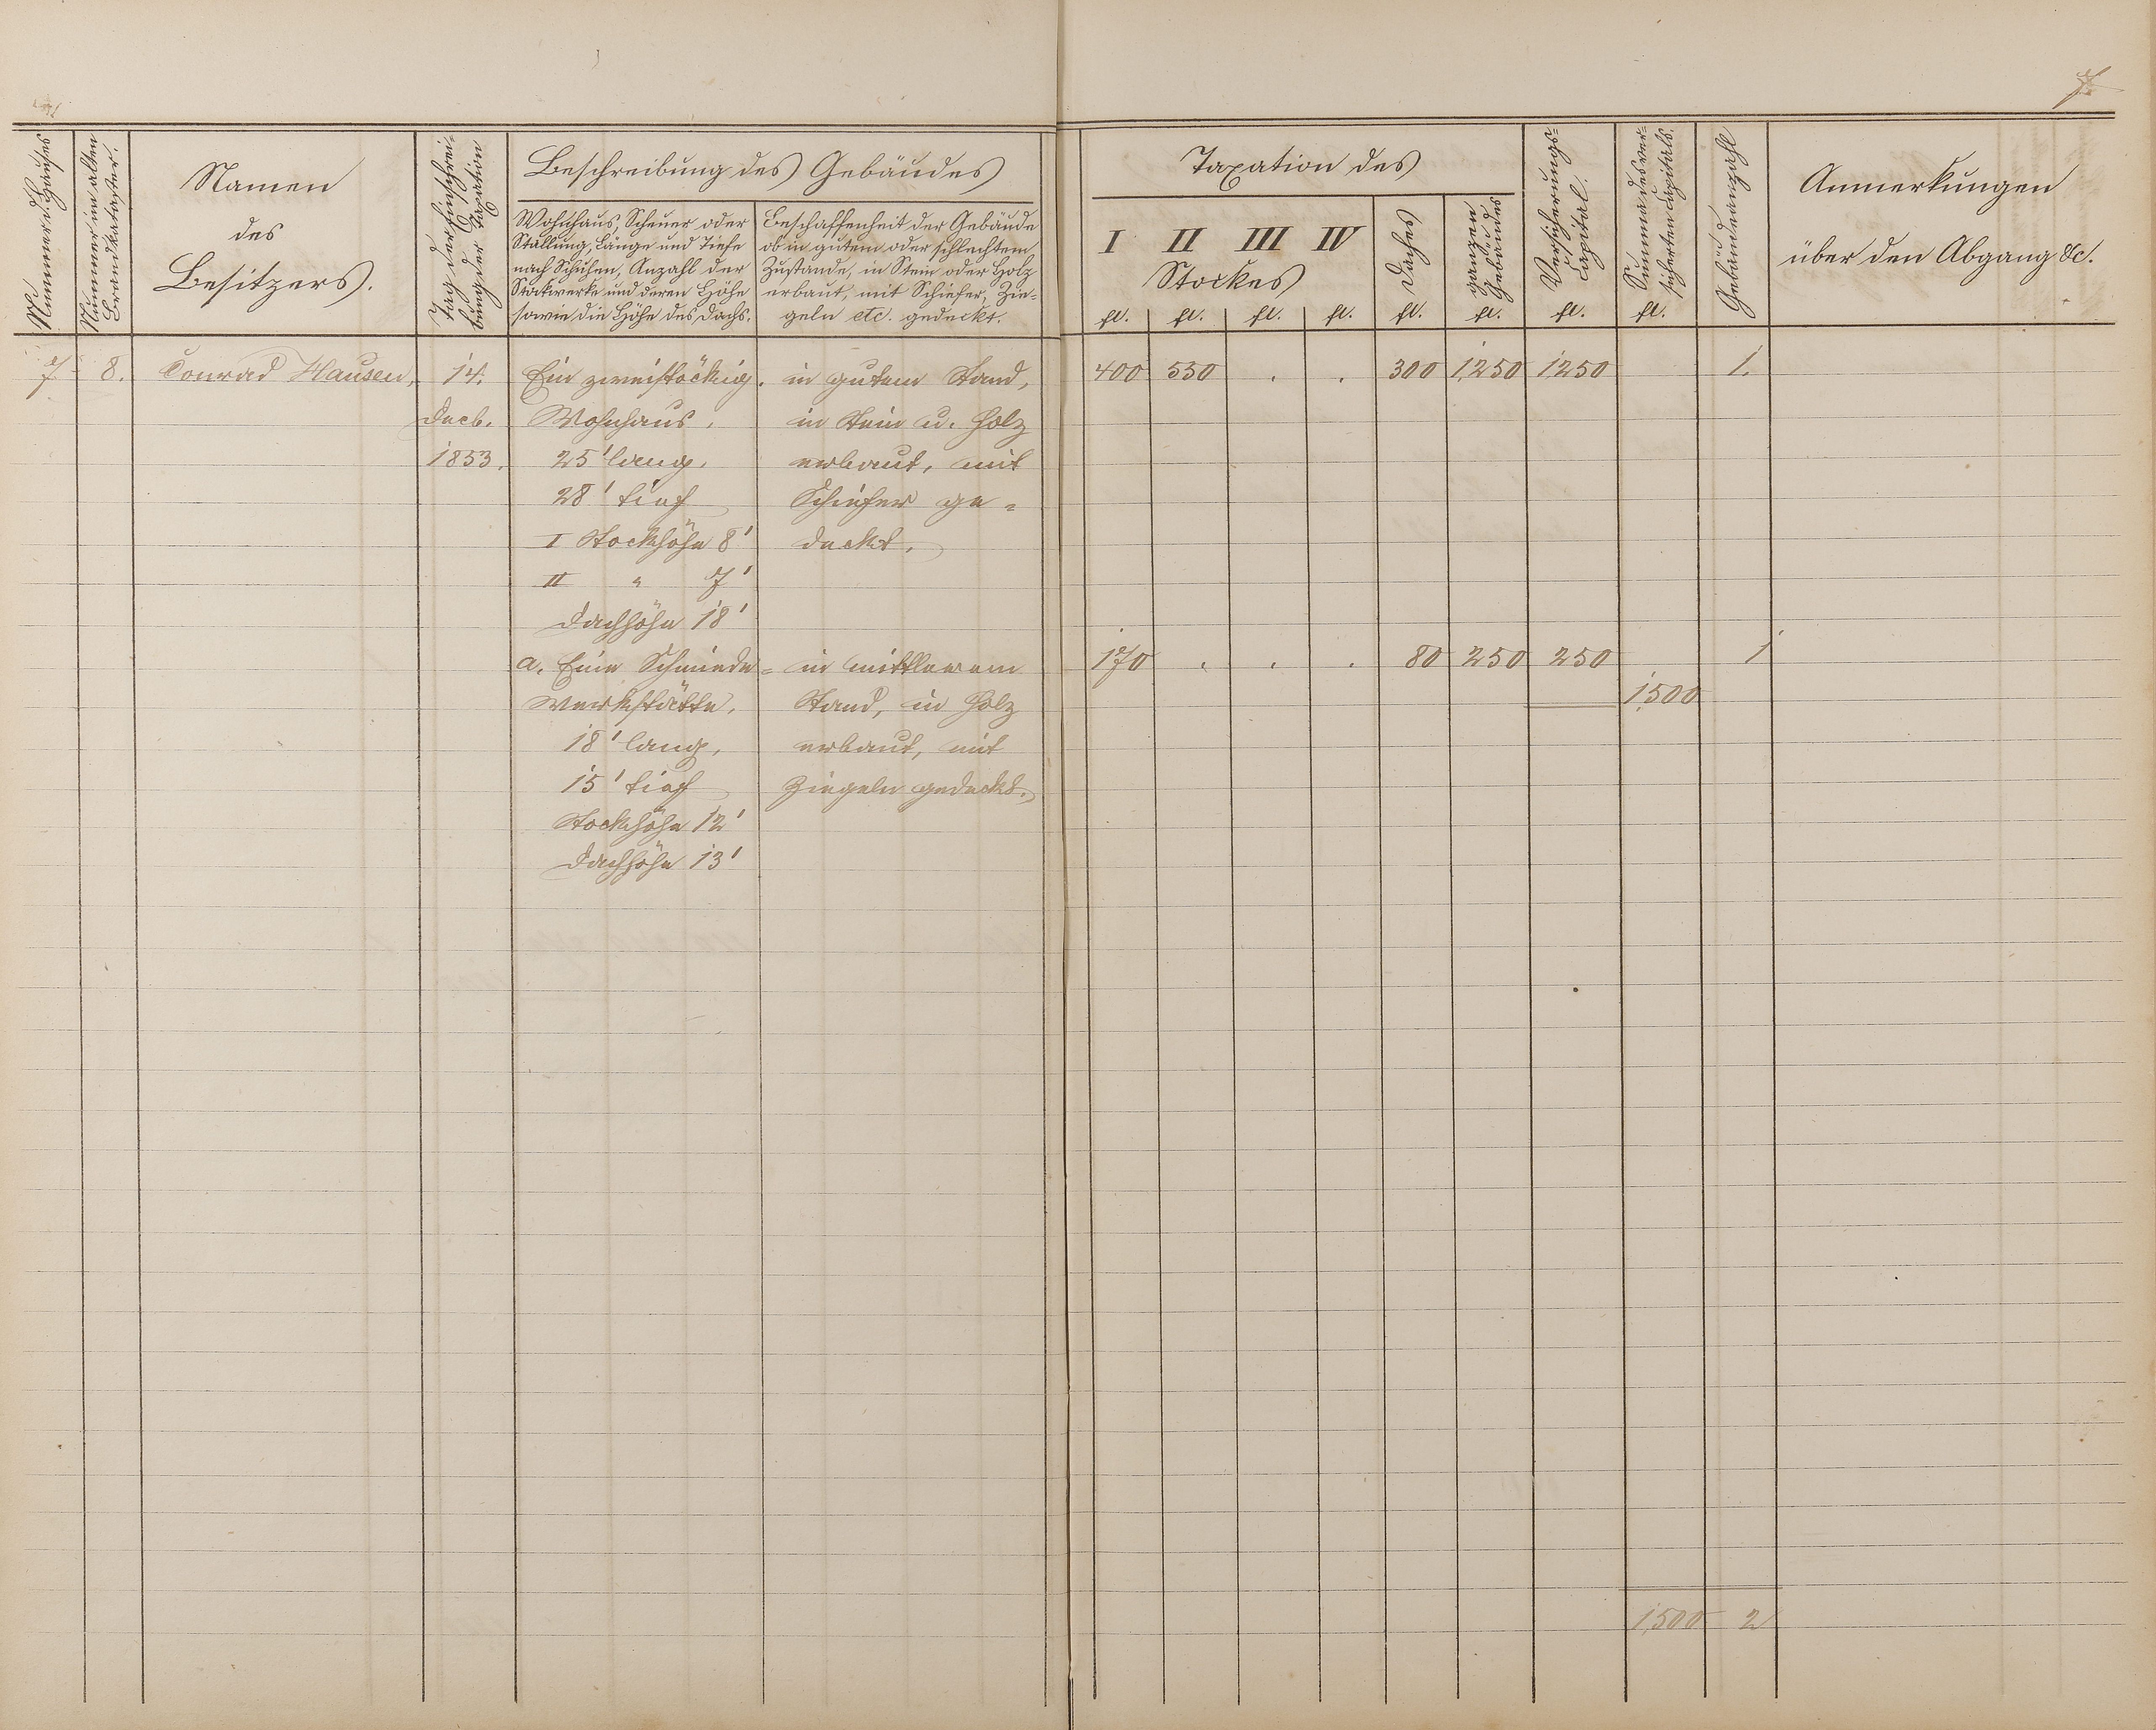 7.
Nummer d. Hauses
Nummer im alten
Brandkataster.
Namen
des
Besitzers.
Tag der Einschrei-
bung der Taxation
Beschreibung des Gebäudes
Wohnhaus, Scheuer oder
Stallung, Länge und Tiefe
nach Schuhen, Anzahl der
Stockwerke und deren Höhe
sowie die Höhe des Dachs.
Beschaffenheit der Gebäude
ob in gutem oder schlechtem
Zustande, in Stein oder Holz
erbaut, mit Schiefer, Zie-
geln etc. gedeckt.
Taxation des
I II III IV
Stockes
Daches
ganzen
Gebäudes
Versicherungs-
Capital.
Summa des ver-
sicherten Capitals.
Gebäudeanzahl
Anmerkungen
über den Abgang &c.
fl. fl. fl. fl. fl. fl. fl. fl.
7. 8. Conrad Hausen, 14. Ein zweistöckig. in gutem Stand, 400 550 . . 300 1,250 1250 1.
Decb. Wohnhaus, in Stein u. Holz
1853. 25' lang, erbaut, mit
28' tief Schiefer ge-
I Stockhöhe 8' deckt.
II " 7'
Dachhöhe 18'
a. Eine Schmiede- in mittlerem 170 . . . 80 250 250 1
Werkstätte, Stand, in Holz 1,500
18' lang, erbaut, mit
15' tief Ziegeln gedeckt.
Stockhöhe 12'
Dachhöhe 13'
1,500 2